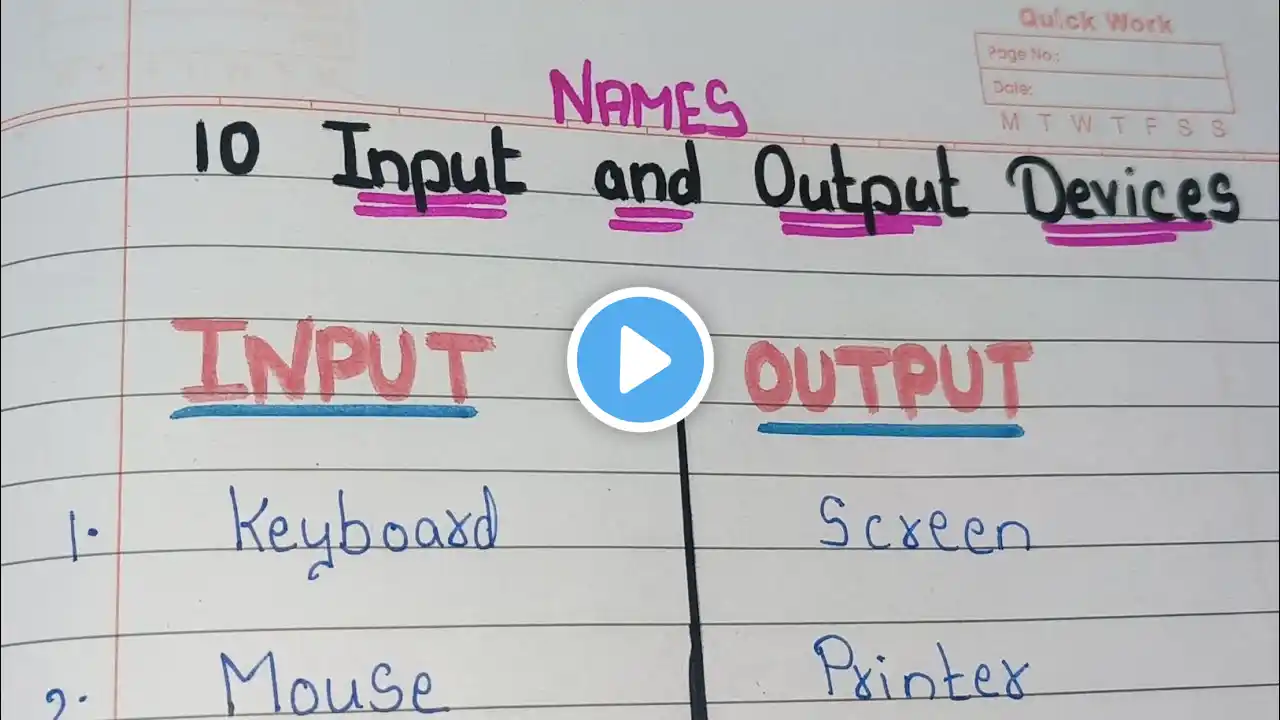 Quick Work
Page No.:
Date:
M T W T F S S
NAMES
10 Input and Output Devices
INPUT OUTPUT
1. Keyboard Screen
2. Mouse Printer